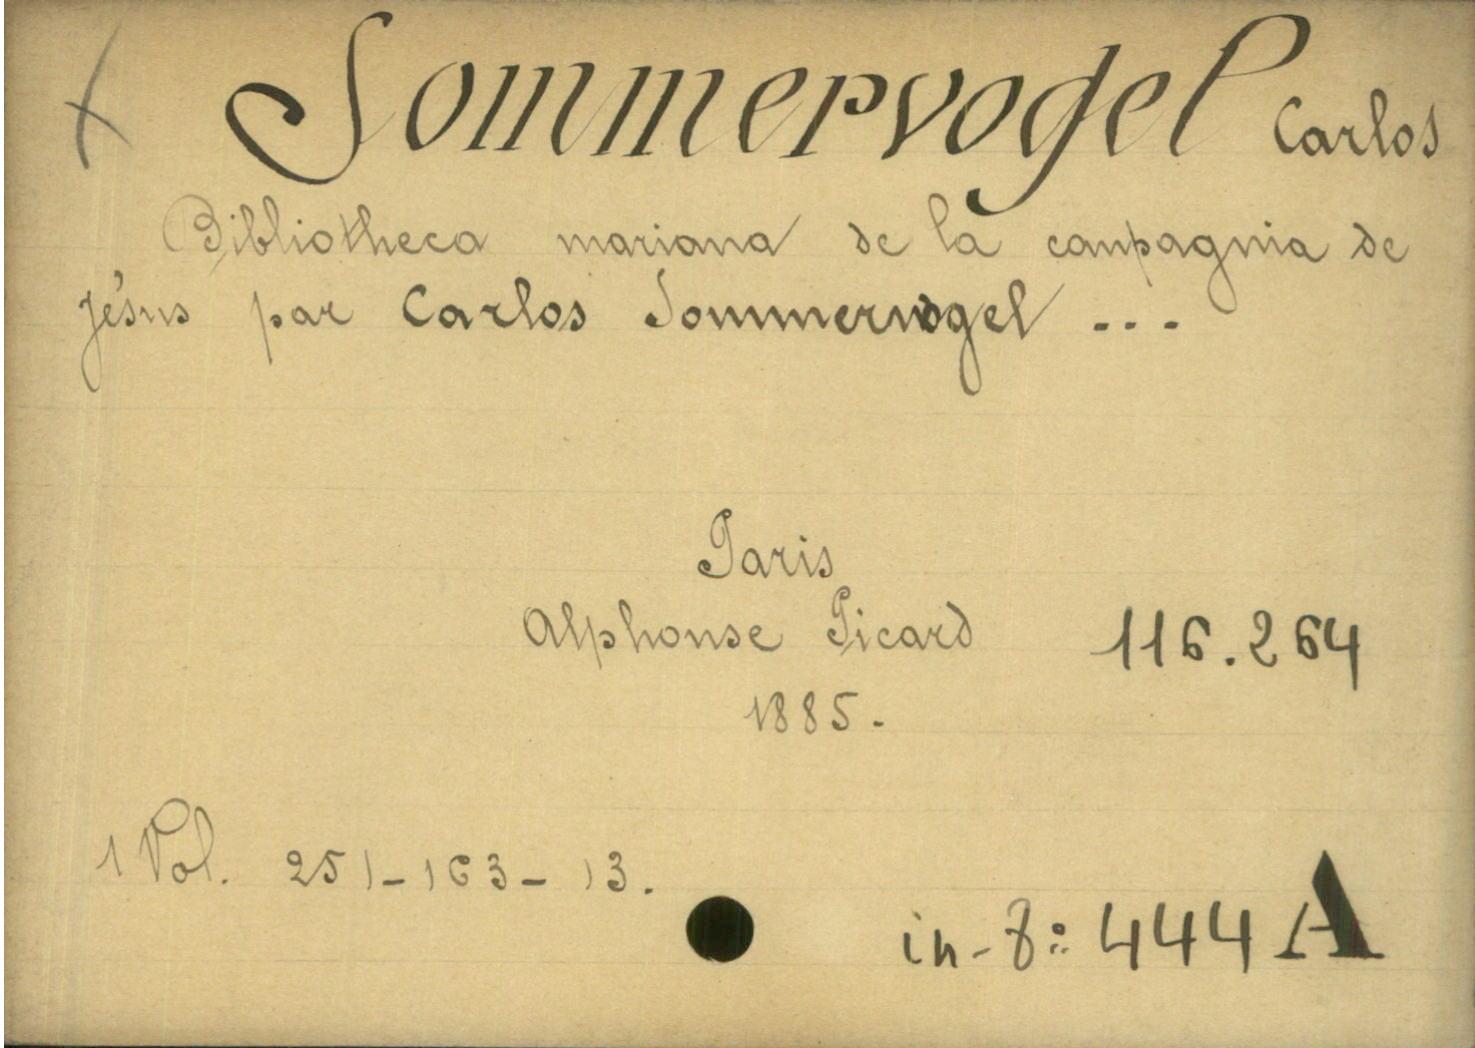 Sommervogel Carlos
Bibliotheca mariana de la campagnia de
Jésus par Carlos Sommervogel ...
Paris
Alphonse Picard 116.264
1885.
1 Vol. 251-163-13.
in-8º: 444 A